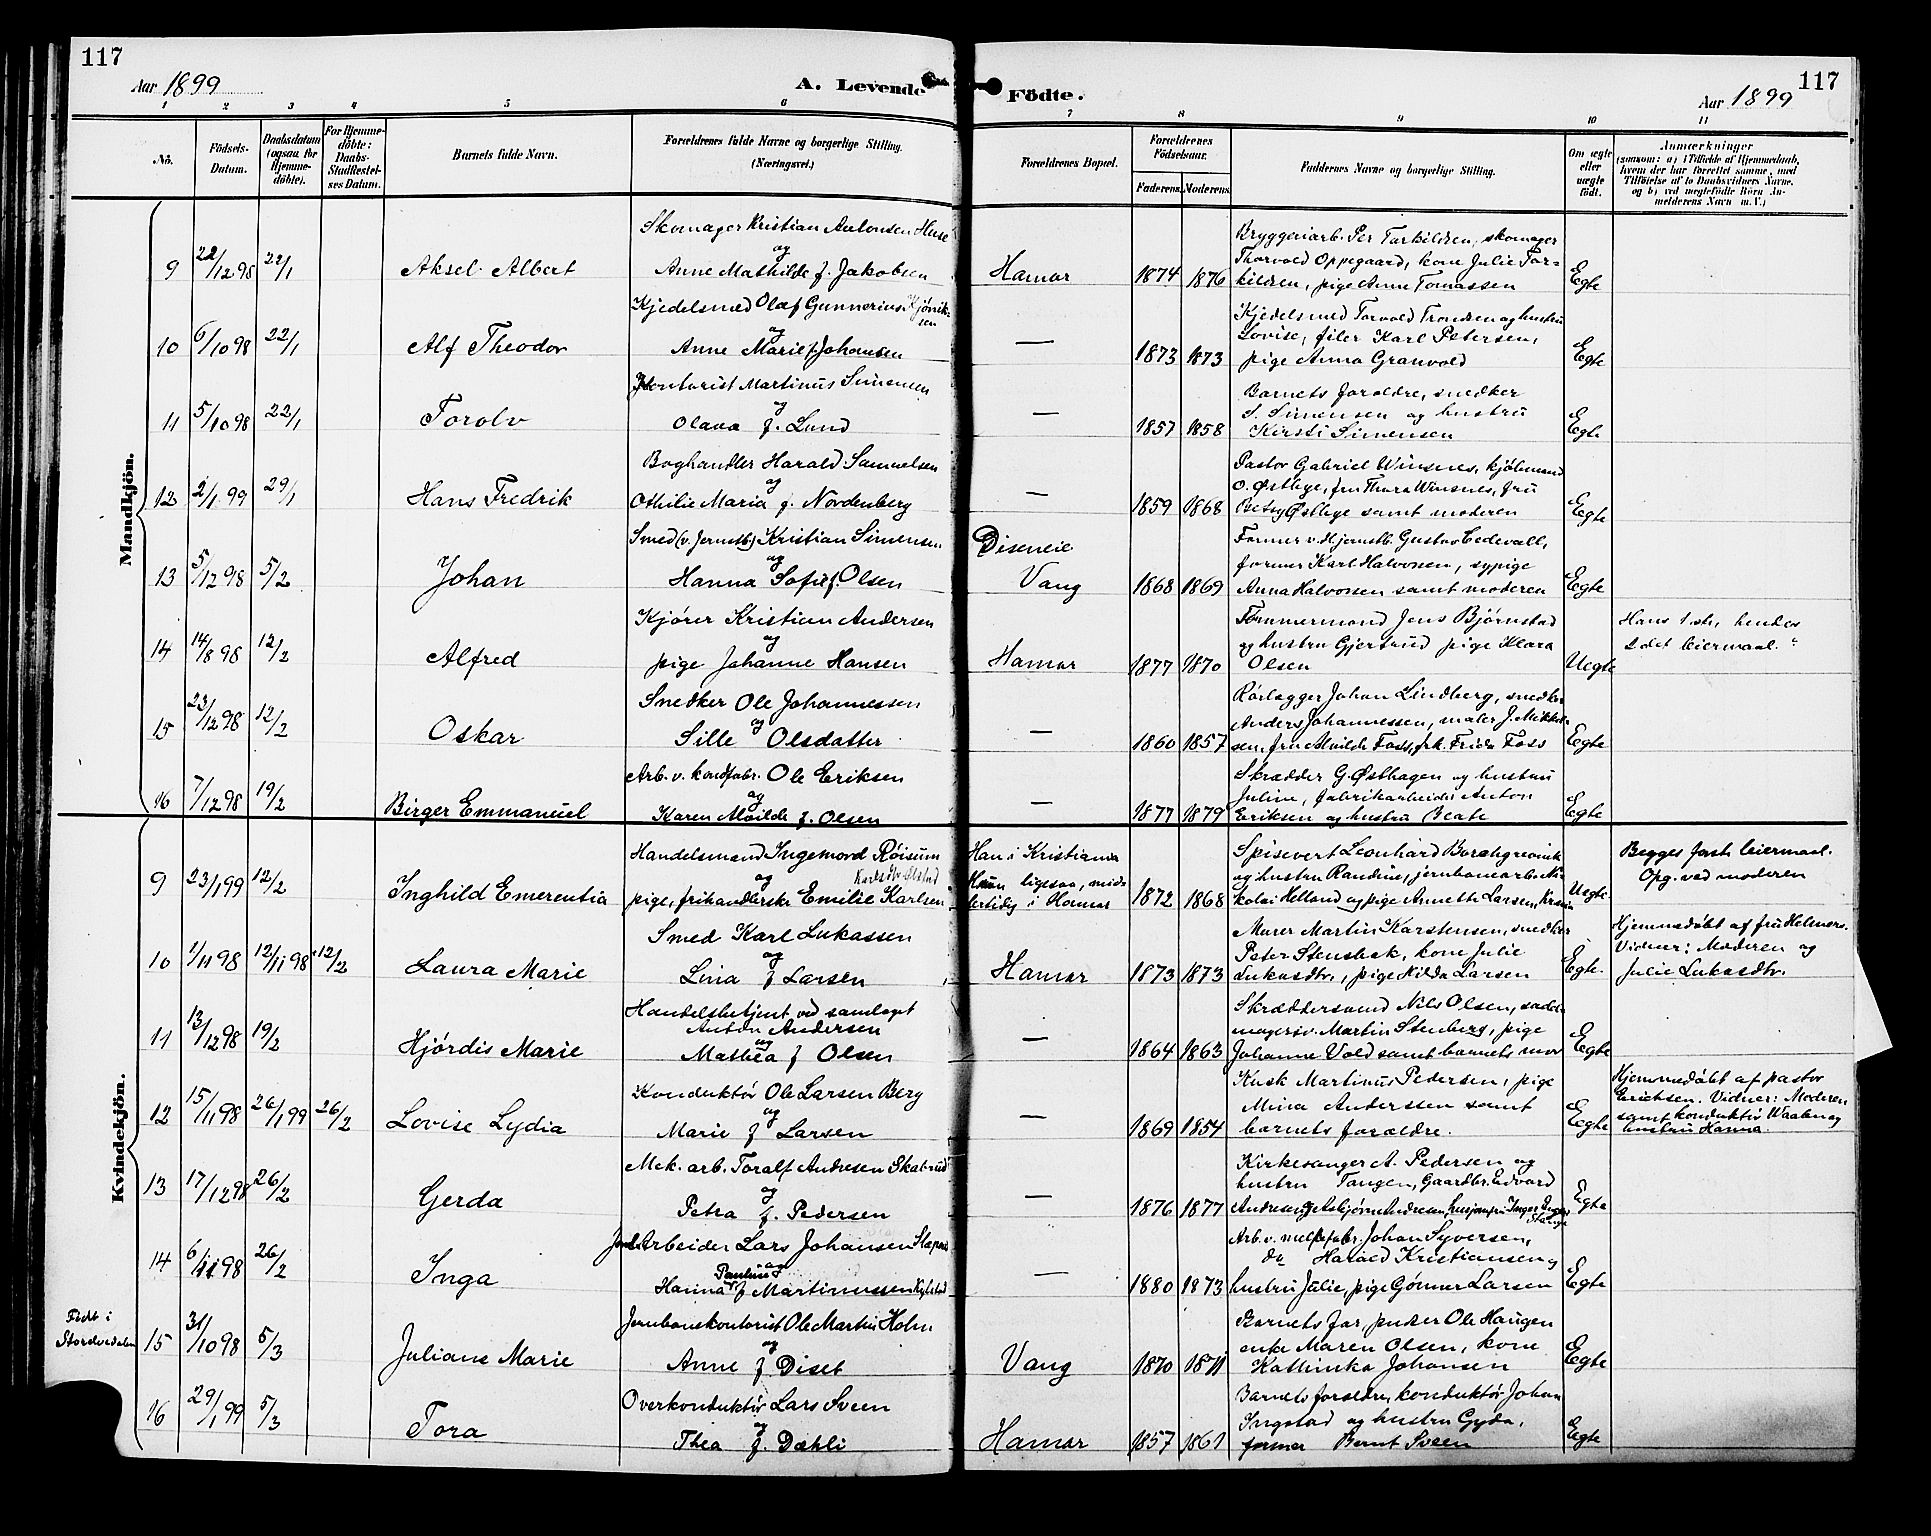 117
Aar 1899
A. Levende
Födte.
117
Aar 1899
1 2 3 4 5 6 7 8 9 10 11
No.
Födsels-
Datum.
Daabsdatum
(ogsaa for
Hjemme-
döbte).
For Hjemme-
döbte:
Daabs-
Stadfæstel-
ses Datum.
Barnets fulde Navn.
Forældrenes fulde Navne og borgerlige Stilling.
(Næringsvei.)
Forældrenes Bopæl.
Forældrenes
Födselsaar.
Faderens. Moderens.
Faddernes Navne og borgerlige Stilling.
Om ægte
eller
uægte
födt.
Anmærkninger
(saasom: a) i Tilfælde af Hjemmedaab,
hvem der har forrettet samme, med
Tilföielse af to Daabsvidners Navne,
og b) ved uægtefödte Börn An-
melderens Navn m. V.)
Mandkjön.
Skomager Kristian Antonsen Huse
og
9 22/12 98 22/1 Aksel Albert Anne Mathilde f. Jakobsen
Hamar 1874 1876
Bryggeriarb. Per Torkildsen, skomager
Thorvald Oppegaard, kone Julie Tor-
kildsen, pige Anne Tomassen Egte
Kjedelsmed Olaf Gunnerius
og
10 6/10 98 22/1 Alf Theodor Anne Marie f. Johansen
— 1873 1873
Kjedelsmed Torvald Trondsen og hustru
Lovise, filer Karl Petersen,
pige Anna Granvold Egte
Kontorist Martinus Simensen
og
11 5/10 98 22/1 Torolv Olava f. Lund
— 1857 1858
Barnets forældre, snedker
S. Simensen og hustru
Kirsti Simensen Egte
Boghandler Harald Samuelsen
og
12 2/1 99 29/1 Hans Fredrik Othilie Maria f. Nordenberg
— 1859 1868
Pastor Gabriel Winsnes, kjøbmand
O. Østbye, fru Thora Winsnes, fru
Betsy Østbye samt moderen Egte
Smed (v. Jernstb.) Kristian Simensen
og
13 5/12 98 5/2 Johan Hanna Sofie f. Olsen
Diseneie
Vang 1868 1869
Former v. Hjernstb. Gustav Cedevall,
former Karl Halvorsen, sypige
Anna Halvorsen samt moderen Egte
Kjører Kristian Andersen
og
14 14/8 98 12/2 Alfred pige Johanne Hansen
Hamar 1877 1870
Tømmermand Jens Bjørnstad
og hustru Gjertrud pige Klara
Olsen Uegte
Hans 1ste, hendes
2det leiermaal.
Snedker Ole Johannessen
og
15 23/12 98 12/2 Oskar Sille Olsdatter
— 1860 1857
Rørlægger Johan Lindberg, snedker
Anders Johannessen, maler J. Mikkel-
sen, fru Alvilde Foss, frk. Frida Foss Egte
Arb. v. kondfabr. Ole Eriksen
og
16 7/12 98 19/2 Birger Emmanuel Karen Alvilde f. Olsen
— 1877 1879
Skrædder G. Østhagen og hustru
Juline, fabrikarbeider Anton
Eriksen og hustru Beate Egte
Kvindekjön.
Handelsmand Ingemord Røisum
og
9 23/1 99 12/2 Inghild Emerentia pige, frihandlerske Emilie Karlsen
Han i Kristiania
Hun ligesaa, mid-
lertidig i Hamar 1872 1868
Spisevert Leonhard Borchgrevink
og hustru Randine, jernbanearb. Ni-
kolai Helland og pige Annette Larsen, Krania Uegte
Begges første leiermaal.
Opg. ved moderen
Smed Karl Lukassen
og
10 1/11 98 12/11 98 12/2 Laura Marie Lina f. Larsen
Hamar 1873 1873
Murer Martin Karstensen, snedker
Peter Stensbak, kone Julie
Lukasdtr., pige Hilda Larsen Egte.
Hjemmedøbt af fru Helmers.
Vidner: Moderen og
Julie Lukasdtr.
Handelsbetjent ved samlaget
Anton Andersen
og
11 13/12 98 19/2 Hjórdis Marie Mathea f. Olsen
— 1864 1863
Skræddersvend Nils Olsen, sadel-
magersv. Martin Stenberg, pige
Johanne Vold samt barnets mor Egte
Konduktór Ole Larsen Berg
og
12 15/11 98 26/1 99 26/2 Lovise Lydia Marie f. Larsen
— 1869 1854
Kusk Martinus Pedersen, pige
Mina Anderssen samt
barnets forældre. Egte
Hjemmedøbt af pastor
Erichsen. Vidner: Moderen
samt konduktór Waalen og
hustru Hanna.
Mek. arb. Toralf Andresen Skatrud
og
13 17/12 98 26/2 Gerda Petra f. Pedersen
— 1876 1877
Kirkesanger A. Pedersen og
hustru Tangen, Gaardbr. Edvard
Andresen Egte
Arbeider Lars Johansen
og
14 6/11 98 26/2 Inga Hanna Pauline f. Martinussen
— 1880 1873
Arb. v. melkefabr. Johan Syversen,
do Harald Kristiansen,
hustru Julie, pige Gønner Larsen Egte
Født i
Storelvedalen
Jernbanekontorist Ole Martin Holm
og
15 31/10 98 5/3 Juliane Marie Anne f. Diset
Vang 1870 1871
Barnets far, pudser Ole Haugen
enke Maren Olsen, kone
Kathinka Johansen Egte
Overkonduktór Lars Sveen
og
16 29/1 99 5/3 Tora Thea f. Dæhli
Hamar 1857 1861
Barnets forældre, konduktór Johan
Ingstad og hustru Gyda,
former Bernt Sveen Egte